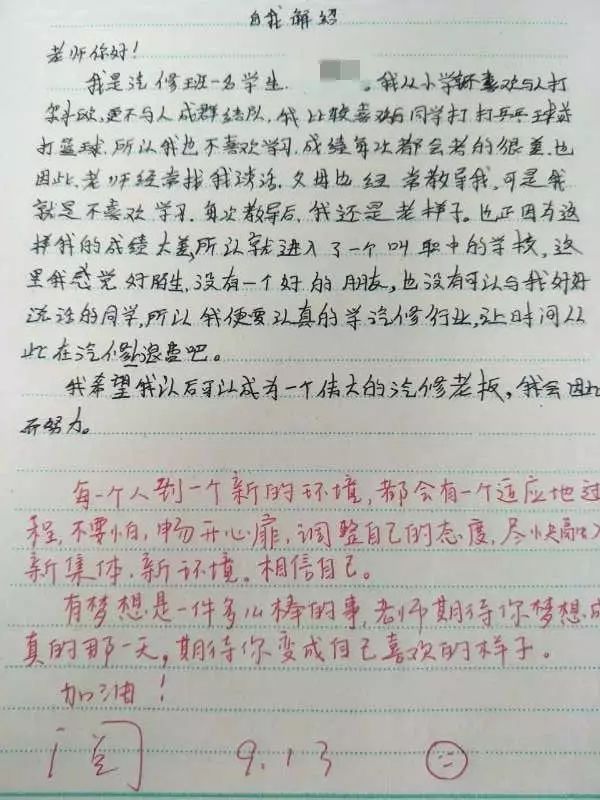 自我解绍
老师你好!
我是汽修班一名学生, 。我从小学就不喜欢与人打
架斗殴,更不与人成群结队,我比较喜欢与同学打打乒乓球或
打篮球,所以我也不喜欢学习,成绩每次都会考的很差,也
因此,老师经常找我谈话,父母也经常教导我,可是我
就是不喜欢学习,每次教导后,我还是老样子。也正因为这
样我的成绩太差,所以就进入了一个叫职中的学校,这
里我感觉好陌生,没有一个好的朋友,也没有可以与我好好
说话的同学,所以我便要认真的学汽修行业,让时间从
此在汽修浪费吧。
我希望我以后可以成为一个伟大的汽修老板,我会因此
而努力。
每一个人到一个新的环境,都会有一个适应地过
程,不要怕,畅开心扉,调整自己的态度,尽快融入
新集体,新环境。相信自己。
有梦想是一件多么棒的事,老师期待你梦想成
真的那一天,期待你变成自己喜欢的样子。
加油!
阅 9.13